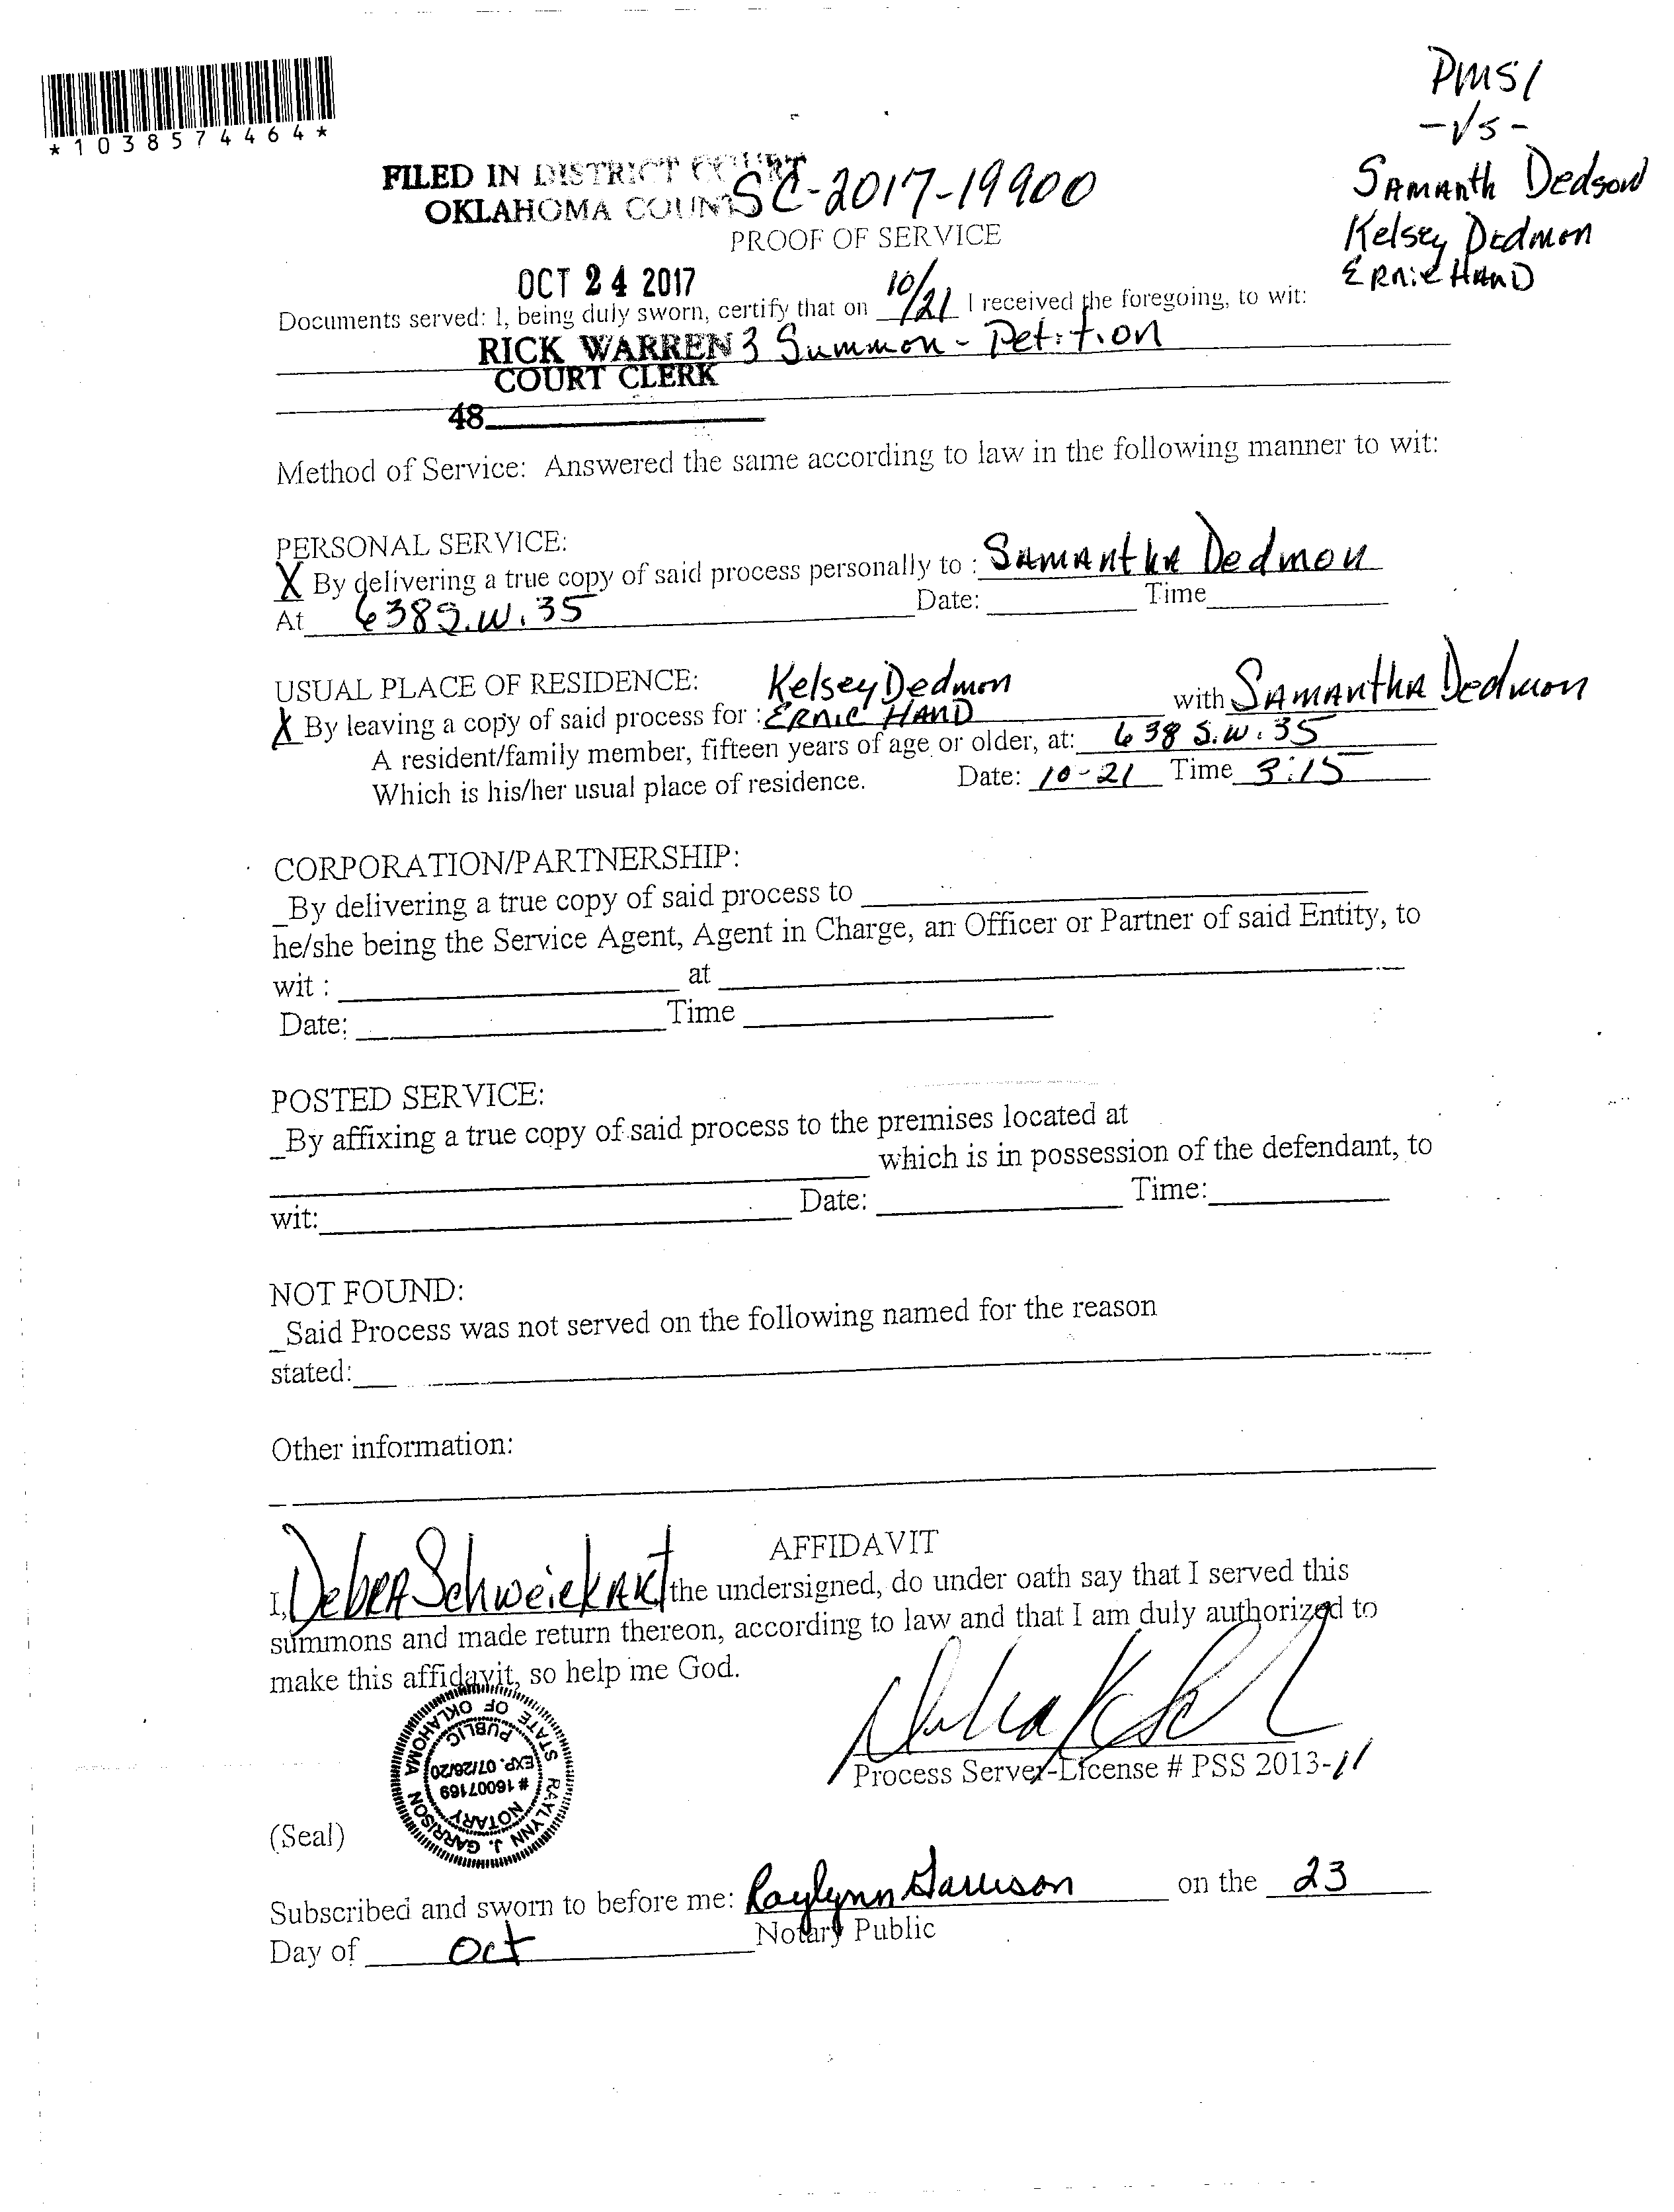 *1038574464*
PMSI
-VS-
SAMANth Dedson
Kelsey Dedmon
ERNIE HAND
FILED IN DISTRICT COURT
OKLAHOMA COUNTY
SC-2017-19900
PROOF OF SERVICE
OCT 24 2017
Documents served: I, being duly sworn, certify that on 10/21 I received the foregoing, to wit:
RICK WARREN 3 Summon - Petition
COURT CLERK
48
Method of Service: Answered the same according to law in the following manner to wit:
PERSONAL SERVICE:
X By delivering a true copy of said process personally to : SAMANthA Dedmon
At 638 S.W. 35 Date: Time
USUAL PLACE OF RESIDENCE: Kelsey Dedmon
X By leaving a copy of said process for : ERNIE HAND with SAMANthA Dedmon
A resident/family member, fifteen years of age or older, at: 638 S.W. 35
Which is his/her usual place of residence. Date: 10-21 Time 3:15
CORPORATION/PARTNERSHIP:
_By delivering a true copy of said process to
he/she being the Service Agent, Agent in Charge, an Officer or Partner of said Entity, to
wit : at
Date: Time
POSTED SERVICE:
_By affixing a true copy of said process to the premises located at
which is in possession of the defendant, to
wit: Date: Time:
NOT FOUND:
_Said Process was not served on the following named for the reason
stated:
Other information:
AFFIDAVIT
I, DebRA SchweickARt the undersigned, do under oath say that I served this
summons and made return thereon, according to law and that I am duly authorized to
make this affidavit, so help me God.
RAYLYNN J. GARRISON
STATE OF OKLAHOMA
NOTARY
# 16007169
EXP. 07/28/20
PUBLIC
Process Server-License # PSS 2013-11
(Seal)
Subscribed and sworn to before me: Raylynn Garrison on the 23
Notary Public
Day of Oct